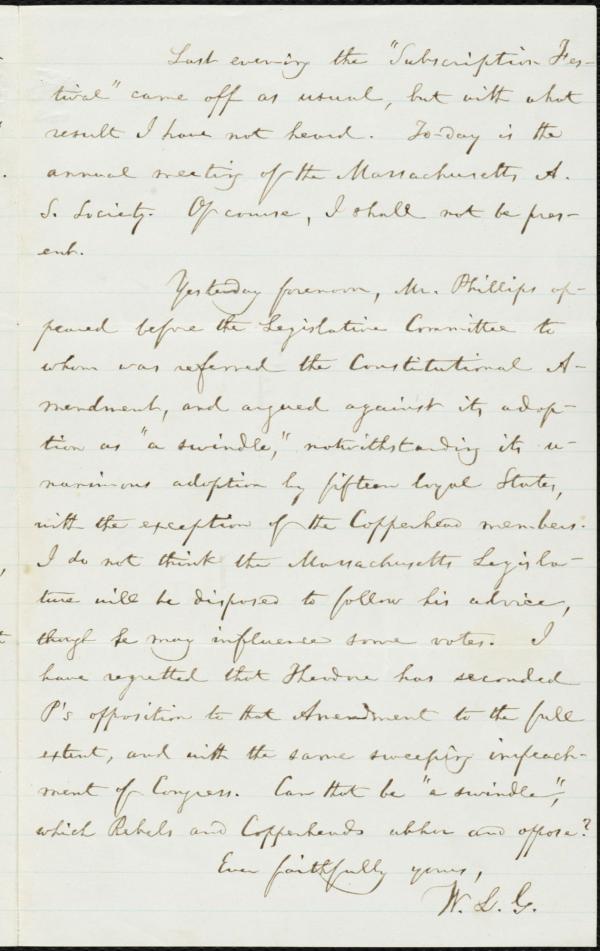 Last evening the "Subscription Fes-
tival" came off as usual, but with what
result I have not heard. To-day is the
annual meeting of the Massachusetts A.
S. Society. Of course, I shall not be pres-
ent.
Yesterday forenoon, Mr. Phillips ap-
peared before the Legislative Committee to
whom was referred the Constitutional A-
mendment, and argued against its adop-
tion as "a swindle," notwithstanding its u-
nanimous adoption by fifteen loyal States,
with the exception of the Copperhead members.
I do not think the Massachusetts Legisla-
ture will be disposed to follow his advice,
though he may influence some votes. I
have regretted that Theodore has seconded
P's opposition to that Amendment to the full
extent, and with the same sweeping impeach-
ment of Congress. Can that be "a swindle",
which Rebels and Copperheads abhor and oppose?
Ever faithfully yours,
W. L. G.